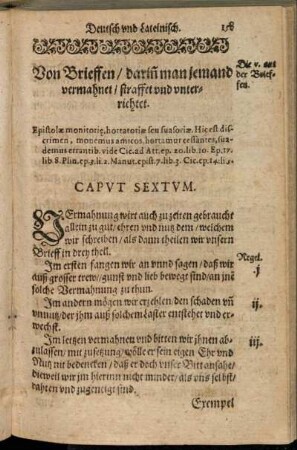 Deutsch vnd Lateinisch.
Von Brieffen / dariñ man jemand
vermahnet / straffet vnd vnter-
richtet.
Die v. art
der Brief-
fen.
Epistolæ monitoriæ, hortatoriæ seu suasoriæ. Hic est dis-
crimen, monemus amicos, hortamur cessantes, sua-
demus errantib. vide Cic. ad Att. ep. 20. lib. 10. Ep. 17.
lib. 8. Plin. ep. 3. li. 2. Manut. epist. 7. lib. 3. Cic. ep. 14. li. 2.
CAPVT SEXTVM.
VErmahnung wirt auch zu zeiten gebraucht
allein zu gut / ehren vnd nutz dem / welchem
wir schreiben / als dann theilen wir vnsern
Brieff in drey theil.
Regel.
Im ersten fangen wir an vnnd sagen / daß wir
j.
auß grosser trew / gunst vnd lieb bewegt sind / an jne
solche Vermahnung zu thun.
Im andern mögen wir erzehlen / den schaden vñ
ij.
vnnutz / der jhm auß solchem laster entstehet vnd er-
wechst.
Im letzen vermahnen vnd bitten wir jhnen ab-
iij.
zulassen / mit zusetzung / wölle er sein eigen Ehr vnd
Nutz nit bedencken / daß er doch vnser Bitt ansahe /
dieweil wir jm hierinn nicht minder / als vns selbst
rahten vnd zugeneigt sind.
Exempel